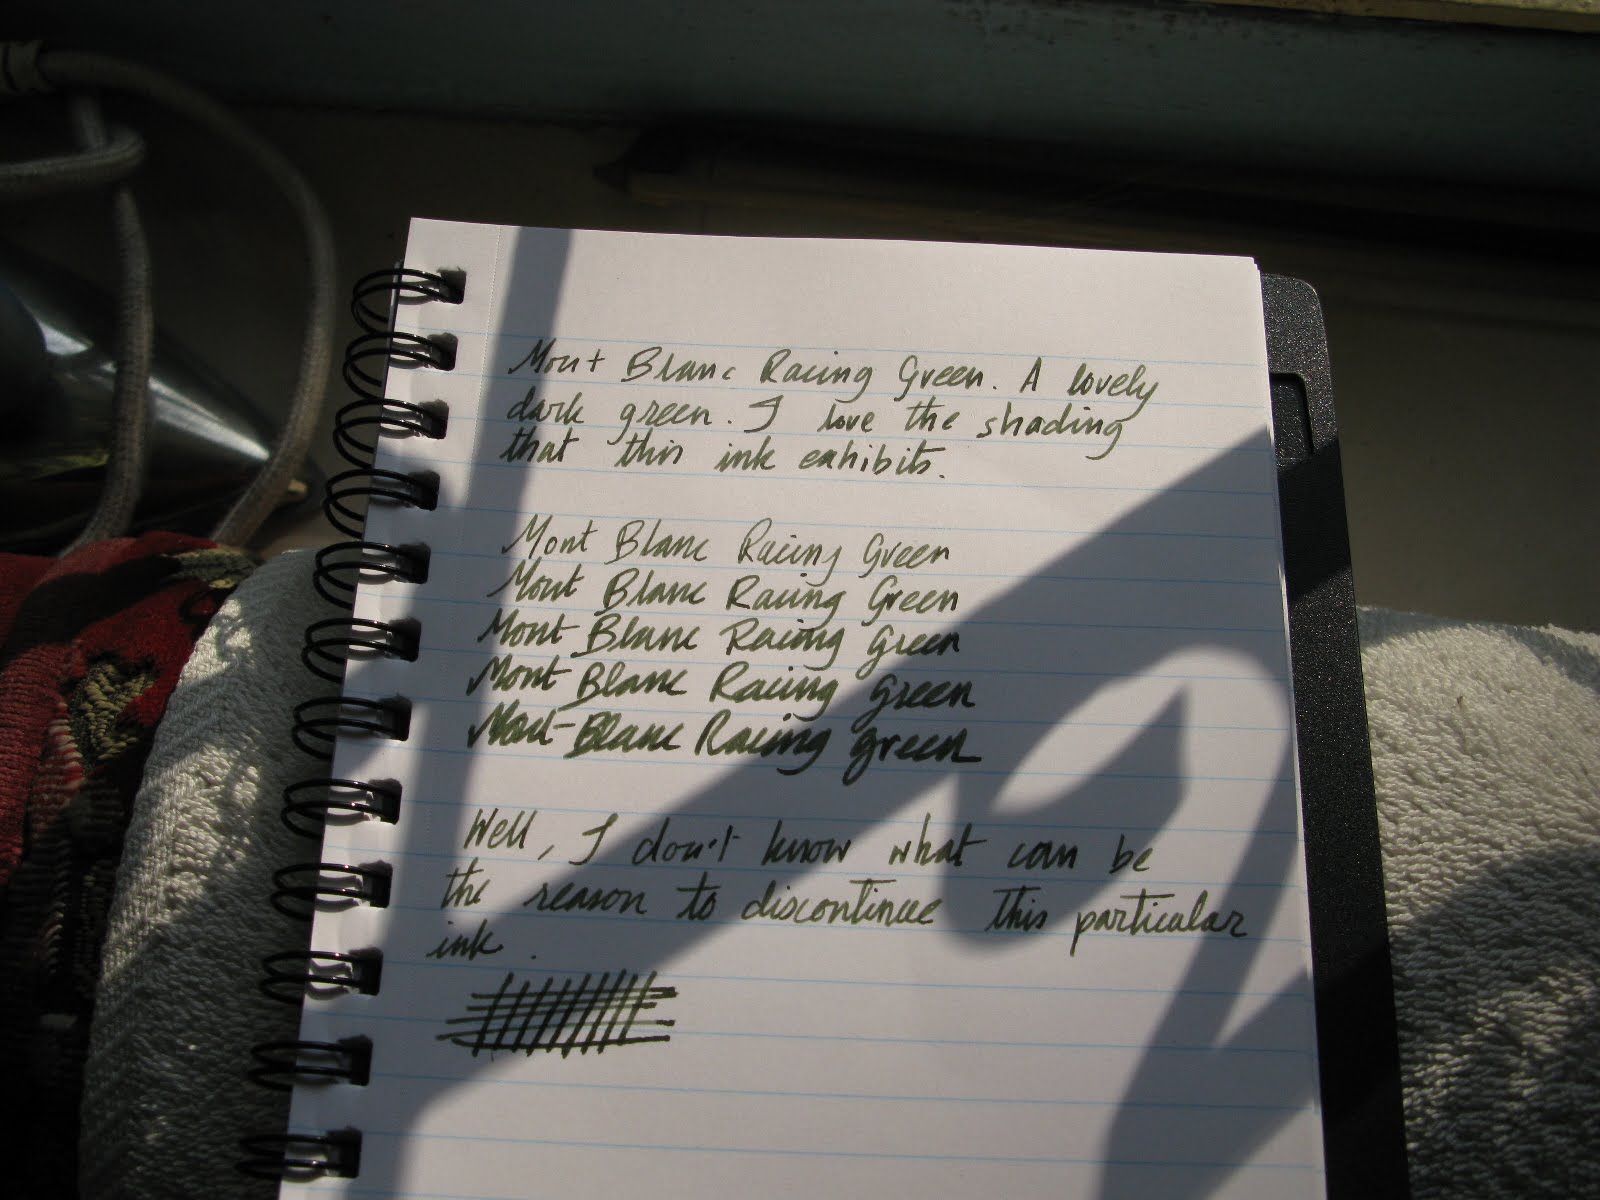 Mont Blanc Racing Green. A lovely
dark green. I love the shading
that this ink exhibits.
Mont Blanc Racing Green
Mont Blanc Racing Green
Mont Blanc Racing Green
Mont Blanc Racing Green
Mont Blanc Racing Green
Well, I don't know what can be
the reason to discontinue this particular
ink.